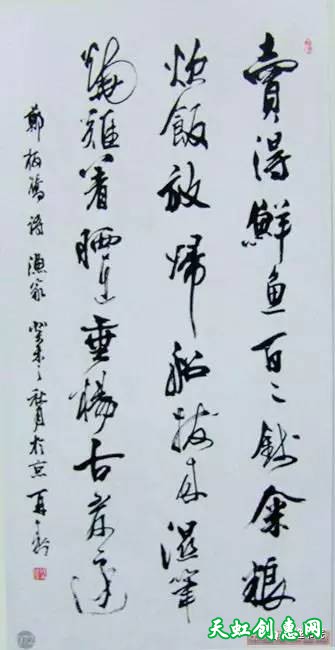 賣得鮮鱼百二錢籴粮
炊飯放歸船拔来濕葦
燒難着晒在垂楊古岸邊
鄭板橋詩漁家 癸未之秋月於京
天虹创惠网